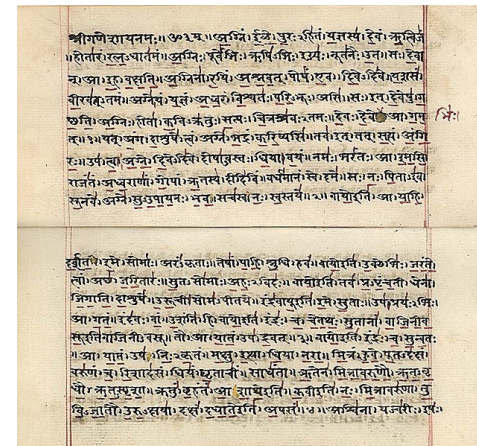 श्रीगणेशायनमः॥ॐ३म्॥अग्निं।ईळे।पुरःहितं।यज्ञस्य।देवं।ऋत्विजं
।होतारं।रत्नधातमं॥अग्निः।पूर्वेभिः।ऋषिभिः।ईड्यः।नूतनैः।उत॥सः।देवा
न्।आ।इह।वक्षति॥अग्निना।रयिं।अश्नवत्।पोषं।एव।दिवेदिवे॥यशसं।
वीरवत्ऽतमं॥अग्ने।यं।यज्ञं।अध्वरं।विश्वतः।परिऽभूः।असि॥सः।इत्।देवेषु।ग
च्छति॥अग्निः।होता।कविऽक्रतुः।सत्यः।चित्रश्रवःऽतमः॥देवः।देवे।आ।गम भिः।
त्॥१॥यत्।अंग।दाशुषे।त्वं।अग्ने।भद्रं।करिष्यसि॥तव।इत्।तत्।सत्यं।अंगि
रः॥उप।त्वा।अग्ने।दिवेऽदिवे।दोषाऽवस्तः।धिया।वयं॥नमः।भरंतः।आ।इमसि
राजंतं।अध्वराणां।गोपां।ऋतस्य।दीदिविं॥वर्धमानं।स्वे।दमे॥सः।नः।पिताऽइव
सूनवे।अग्ने।सुऽउपायनः।भव॥सचस्व।नः।स्वस्तये॥२॥वायोइति।आ।याहि
दर्शत।इमे।सोमाः।अरंऽकृताः॥तेषां।पाहि।श्रुधि।हवं॥वायोइति।उक्थेभिः।जरंते
त्वां।अच्छ।जरितारः॥सुतऽसोमाः।अहःऽविदः॥वायोइति।तव।प्रऽपृंचती।धेना।
जिगाति।दाशुषे॥उरूची।सोमऽपीतये॥इंद्रवायूइति।इमे।सुताः॥उप।प्रयःऽभिः।
आ।गतं॥इंदवः।वां।उशंति।हि॥वायोइति।इंद्रः।च।चेतथः।सुतानां।वाजिनीव
सूइतिवाजिनीऽवसू॥तौ।आ।यातं।उप।द्रवत्॥३॥वायोइति।इंद्रः।च।सुन्वतः
।आ।यातं।उप।निःऽकृतं॥मक्षु।इत्था।धिया।नरा॥मित्रं।हुवे।पूतऽदक्षं
वरुणं।च।रिशादसं॥धियं।घृताचीं।साधंता॥ऋतेन।मित्रावरुणौ।ऋतऽवृ
धौ।ऋतऽस्पृशा॥क्रतुं।बृहंतं।आशाथेइति॥कवीइति।नः।मित्रावरुणा।तु
विऽजातौ।उरुऽक्षया॥दक्षं।दधातेइति।अपसं॥४॥अश्विना।यज्वरीः।इषः